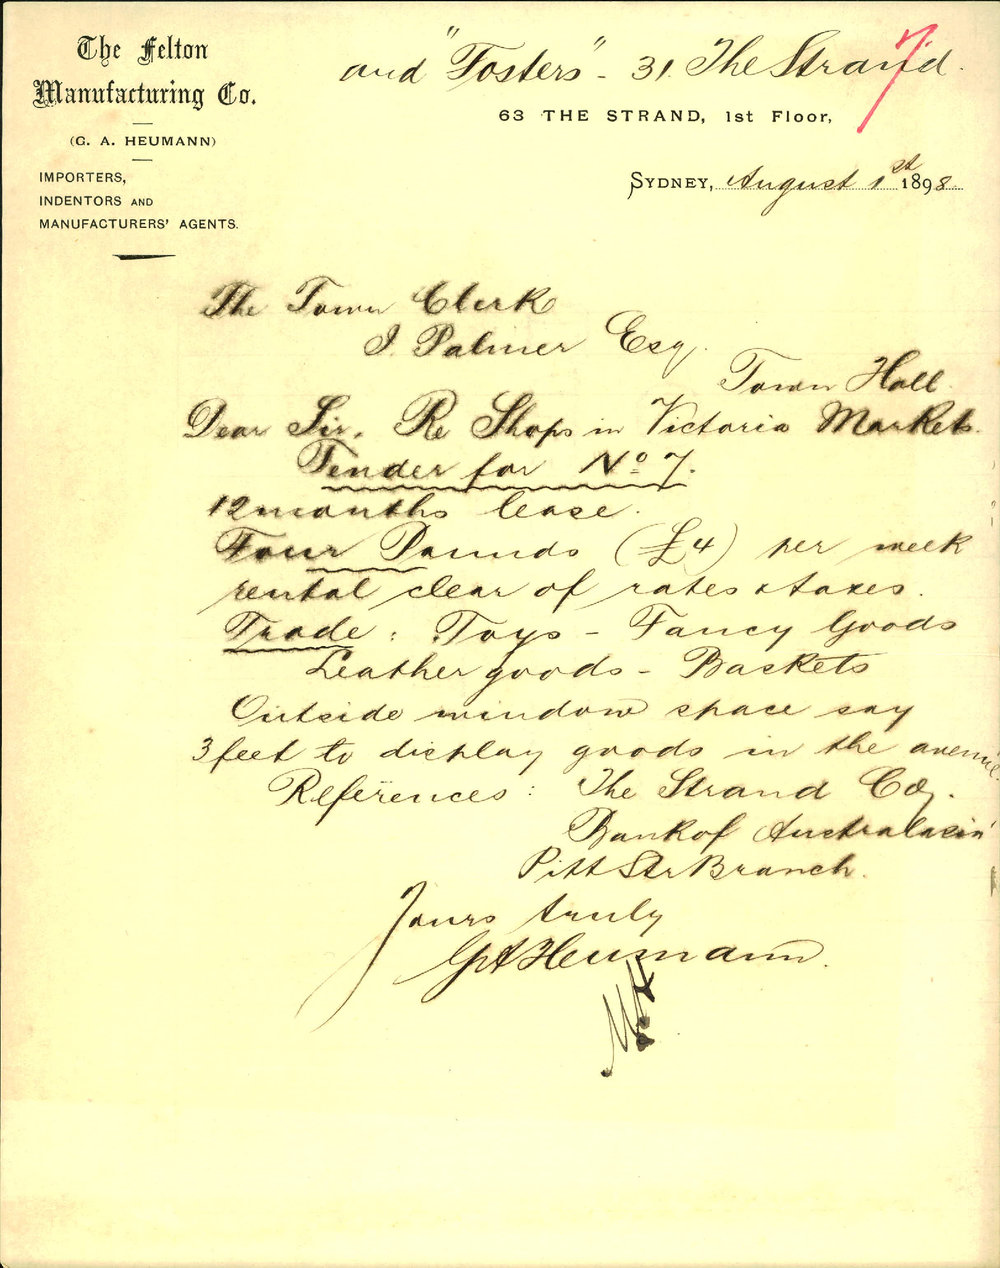 The Felton
Manufacturing Co.
(G. A. HEUMANN)
IMPORTERS,
INDENTORS AND
MANUFACTURERS' AGENTS.
and "Fosters" - 31 The Strand.
7
63 THE STRAND, 1st Floor,
SYDNEY, August 1st 1898.
The Town Clerk
J. Palmer Esq.
Town Hall.
Dear Sir. Re Shops in Victoria Markets.
Tender for No 7.
12 months lease.
Four Pounds (£4) per week
rental clear of rates & taxes.
Trade: Toys - Fancy Goods
Leather goods - Baskets
Outside window space say
3 feet to display goods in the avenue.
References: The Strand Coy.
Bank of Australasia
Pitt Str Branch.
Yours truly
GAHeumann.